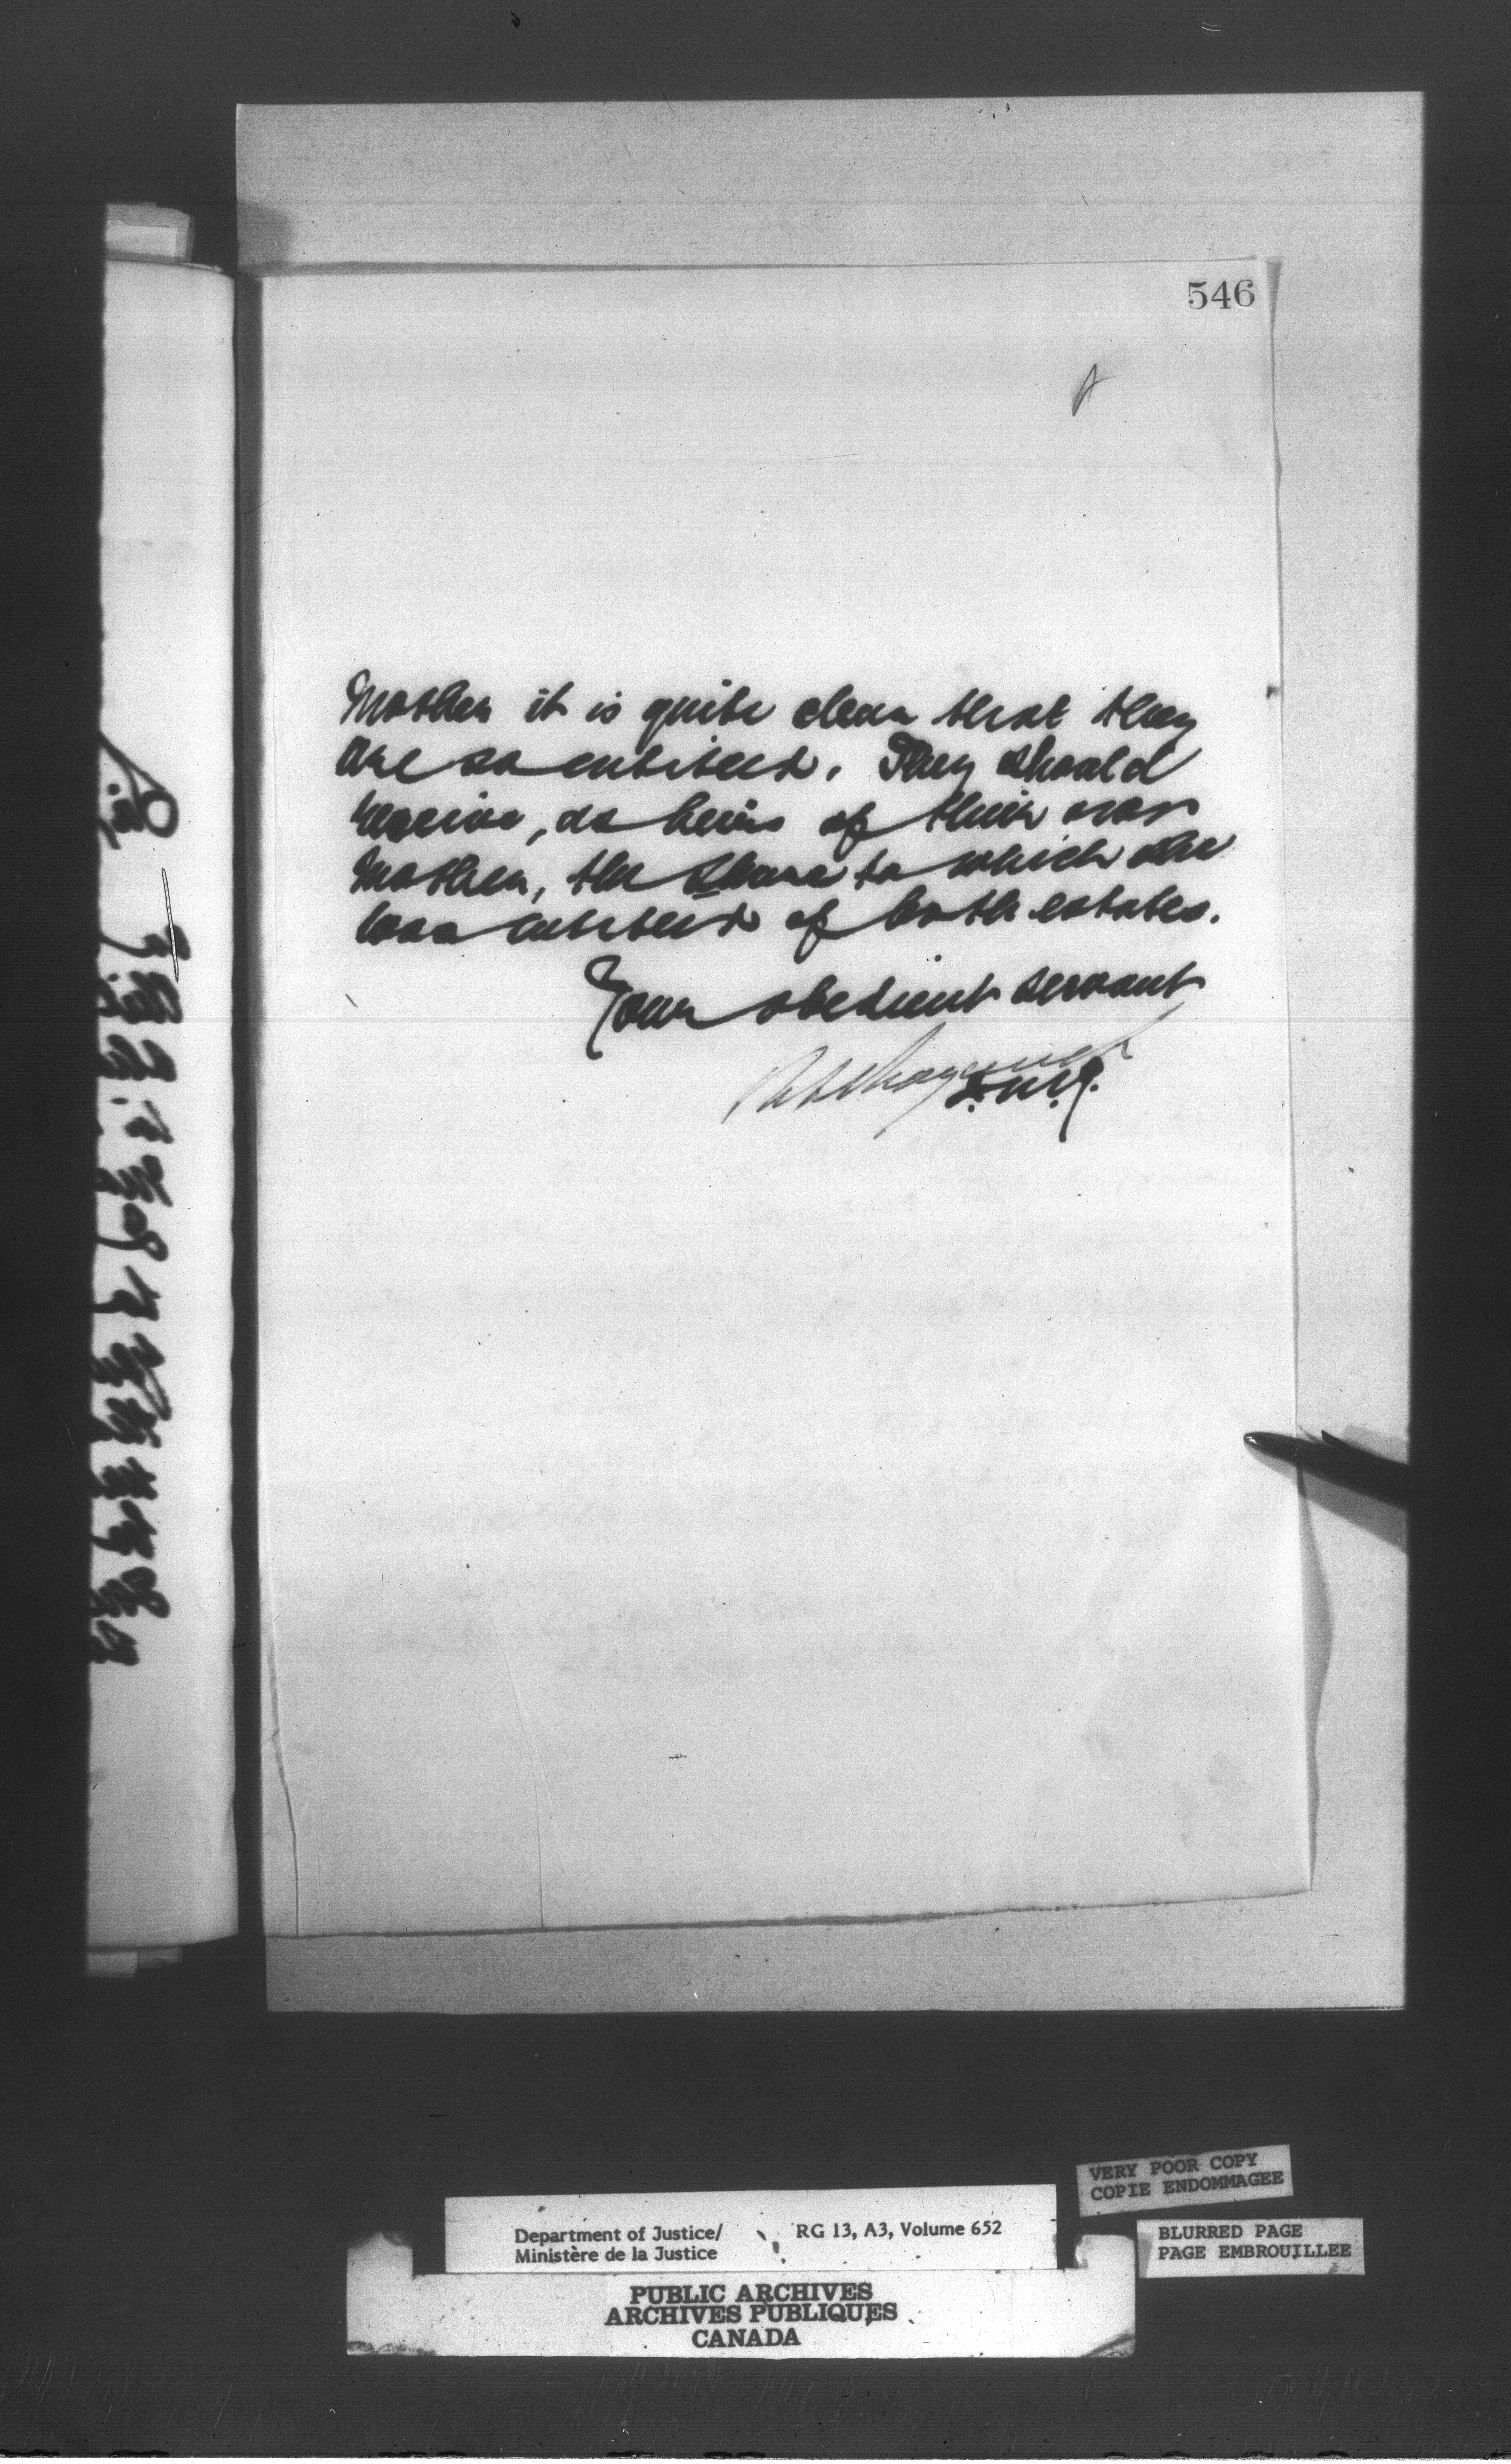 546
Mother it is quite clear that they
are so entitled. They should
receive, as heirs of their own
Mother, the share to which she
was entitled of both estates.
Your obedient servant
D.M.J.
VERY POOR COPY
COPIE ENDOMMAGEE
Department of Justice/
Ministère de la Justice
RG 13, A3, Volume 652
BLURRED PAGE
PAGE EMBROUILLEE
PUBLIC ARCHIVES
ARCHIVES PUBLIQUES
CANADA